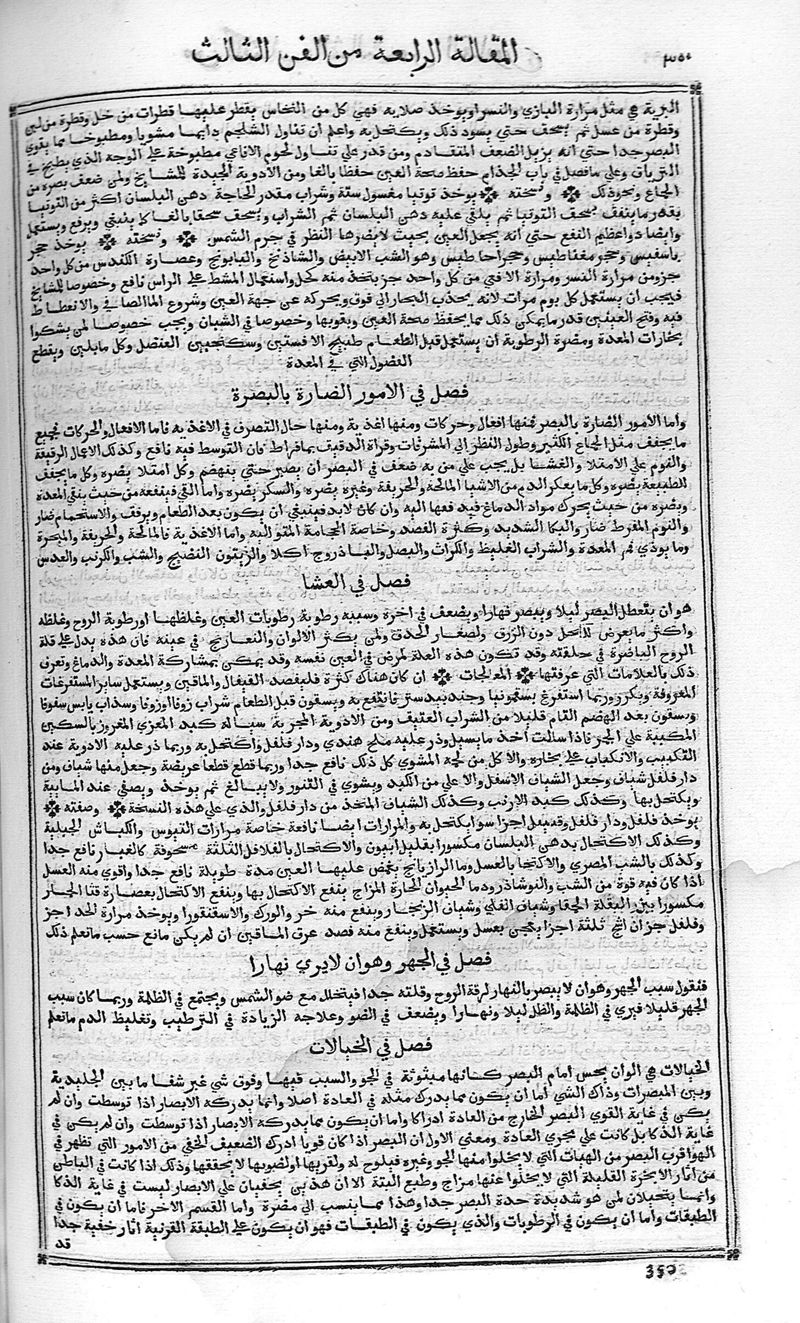 ٣٥٠
المقالة الرابعة من الفن الثالث
البرية هي مثل مرارة البازي والنسر اويوخذ صلابه فهي كل من النحاس يقطر عليها قطرات من خل وقطرة من لبن
وقطرة من عسل ثم يسحف حتي يسود ذلك ويكتحل به واعلم ان تناول الشلجم دايما مشويا ومطبوخا مما يقوي
البصر جدا حتي انه يزيل الضعف المتقادم ومن قدر علي تناول لحوم الافاعي مطبوخة علي الوجه الذي يطبخ في
الترياق وعلي ما فصل في باب الجذام حفظ صحة العين حفظا بالغا ومن الادوية الجيدة للمشايخ ولمن ضعف بصره من
الجماع ونحو ذلك ونسخته يوخذ توتيا مغسول ستة وشراب مقدر الحاجة دهن البلسان اكثر من التوتيا
بقدر ما يتفف يسحف التوتيا ثم يلقي عليه دهن البلسان ثم الشراب ويسحف سحقا بالغا كما ينبغي ويرفع ويستعمل
وايضا دوا عظيم النفع حتي انه يجعل العين بحيث لا يضرها النظر في جرم الشمس ونسخته يوخذ حجر
باسفيس وحجر مغناطيس وحجر احاطيس وهو الشب الابيض والشاذنج والبابونج وعصارة الكندس من كل واحد
جزو من مرارة النسر ومرارة الافعي من كل واحد جز يتخذ منه كحل واستعمال المشط علي الراس نافع وخصوصا للمشايخ
فيجب ان يستعمل كل يوم مرات لانه يجذب البخار الي فوق ويحركه عن جهة العين وشروع الما الصافي والانغطاط
فيه وفتح العينين قدر ما يمكن ذلك مما يحفظ صحة العين ويقويها وخصوصا في الشبان ويجب خصوصا لمن يشكوا
بخارات المعدة ومضرة الرطوبة ان يستعمل قبل الطعام طبيخ الافسنتين وسكنجبين العنصل وكل ما يلين ويقطع
الفضول التي في المعدة
فصل في الامور الضارة بالبصرة
واما الامور الضارة بالبصر فمنها افعال وحركات ومنها اغذية ومنها حال التصرف في الاغذيه فاما الافعال والحركات فجميع
ما يجفف مثل الجماع الكثير وطول النظر الي المشرقات وقراة الدقيق بافراط فان التوسط فيه نافع وكذلك الاعمال الرقيقة
والنوم علي الامتلا والعشا بل يجب علي من به ضعف في البصر ان يصبر حتي ينهضم وكل امتلا يضره وكل ما يجفف
الطبيعة يضره وكل ما يعكر الدم من الاشيا المالحة والحريفة وغيره يضره والسكر يضره واما القي فينفعه من حيث ينقي المعدة
ويضره من حيث يحرك مواد الدماغ فيدفعها اليه وان كان لابد فينبغي ان يكون بعد الطعام وبرفف والاستحمام ضار
والنوم المفرط ضار والبكا الشديد وكثرة الفصد وخاصة الحجامة المتوالية واما الاغذية فالمالحة والحريفة والمبخرة
وما يوذي فم المعدة والشراب الغليظ والكراث والبصل والباذروج اكلا والزيتون النضيج والشب والكرنب والعدس
فصل في العشا
هو ان يتعطل البصر ليلا ويبصر نهارا ويضعف في اخره وسببه رطوبة رطوبات العين وغلظها او رطوبة الروح وغلظه
واكثر ما يعرض للكحل دون الزرق ولصغار الحدق ولمن يكثر الالوان والتعاريج في عينه فان هذه يدل علي قلة
الروح الباصرة في خلقته وقد تكون هذه العلة لمرض في العين نفسه وقد يمكن بمشاركة المعدة والدماغ وتعرف
ذلك بالعلامات التي عرفتها المعالجات ان كان هناك كثرة فليفصد القيفال والماقين ويستعمل ساير المستفرغات
المعروفة ويكرر وربما استفرغ بسقمونيا وجندبيدستر فانتفع به ويسقون قبل الطعام شراب زوفا او زوفا وسداب يابس سفوفا
ويسقون بعد الهضم التام قليلا من الشراب العتيق ومن الادوية المجربة سيالة كبد المعزي المغروز بالسكين
المكببة علي الجمر فاذا سالت اخذ ما يسيل وذر عليه ملح هندي ودار فلفل واكتحل به وربما ذر عليه الادوية عند
التكبيب والانكباب علي بخاره والاكل من لحمه المشوي كل ذلك نافع جدا وربما قطع قطعا عريضة وجعل منها شياف ومن
دار فلفل شياف وجعل الشياف الاسفل والاعلي من الكبد ويشوي في التنور ولا يبالغ ثم يوخذ ويصفي عنه المايية
ويكتحل بها وكذلك كبد الارنب وكذلك الشياف المتخذ من دار فلفل والذي علي هذه النسخة وصفته
يوخذ فلفل ودار فلفل وقنبيل اجزا سوا يكتحل به والمرارات ايضا نافعة خاصة مرارات التيوس والكباش الجبلية
وكذلك الاكتحال بدهن البلسان مكسورا بقليل افيون والاكتحال بالفلافل الثلثة مسحوقة كالغبار نافع جدا
وكذلك بالشب المصري والاكتحال بالعسل وما الرازيانج يغمض عليها العين مدة طويلة نافع جدا واقوي منه العسل
اذا كان فيه قوة من الشب والنوشاذر ودما الحيوان الحارة المزاج ينفع الاكتحال بها وينفع الاكتحال بعصارة قثا الحمار
مكسورا ببزر البقلة الحمقا وشياف القلي وشياف الزنجار وينفع منه خر والورك والاسقنقور او يوخذ مرارة الحدا جز
وفلفل جزان اشج ثلثة اجزا يعجن بعسل ويستعمل وينفع منه فصد عرق الماقين ان لم يكن مانع حسب ما تعلم ذلك
فصل في الجهر وهو ان لا يري نهارا
فنقول سبب الجهر وهو ان لا يبصر بالنهار لرقة الروح وقلته جدا فيتحلل مع ضو الشمس ويجتمع في الظلمة وربما كان سبب
الجهر قليلا فيري في الظلمة والظل ليلا ونهارا ويضعف في الضو وعلاجه الزيادة في الترطيب وتغليظ الدم ما تعلم
فصل في الخيالات
الخيالات هي الوان يحس امام البصر كانها مبثوثة في الجو والسبب فيها وقوف شي غير شفا ما بين الجليدية
وبين المبصرات وذاك الشي اما ان يكون مما يدرك مثله في العادة اصلا وانما يدركه الابصار اذا توسطت وان لم
يكن في غاية القوي البصر الخارج من العادة ادراكا واما ان يكون مما يدركه الابصار اذا توسطت وان لم يكن في
غاية الذكا بل كانت علي مجري العادة ومعني الاول ان البصر اذا كان قويا ادرك الضعيف الخفي من الامور التي تظهر في
الهوا قرب البصر من الهبات التي لا يخلوا منها الجو وغيره فيلوح له ولقربها او لضوبها لا يحققها وكذلك اذا كانت في الباطن
من اثار الابخرة القليلة التي لا يخلوا عنها مزاج وطبع البتة الا ان هذين يخفيان علي الابصار ليست في غاية الذكا
وانما يتخيلان لمن هو شديدة حدة البصر جدا وهذا مما ينسب الي مضرة واما القسم الاخر فاما ان يكون في
الطبقات واما ان يكون في الرطوبات والذي يكون في الطبقات فهو ان يكون علي الطبقة القرنية اثار خفية جدا
قد
350